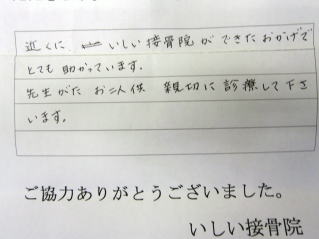 近くに いしい接骨院ができたおかげで
とても助かっています。
先生がた お二人供 親切に診療して下さ
います。
ご協力ありがとうございました。
いしい接骨院